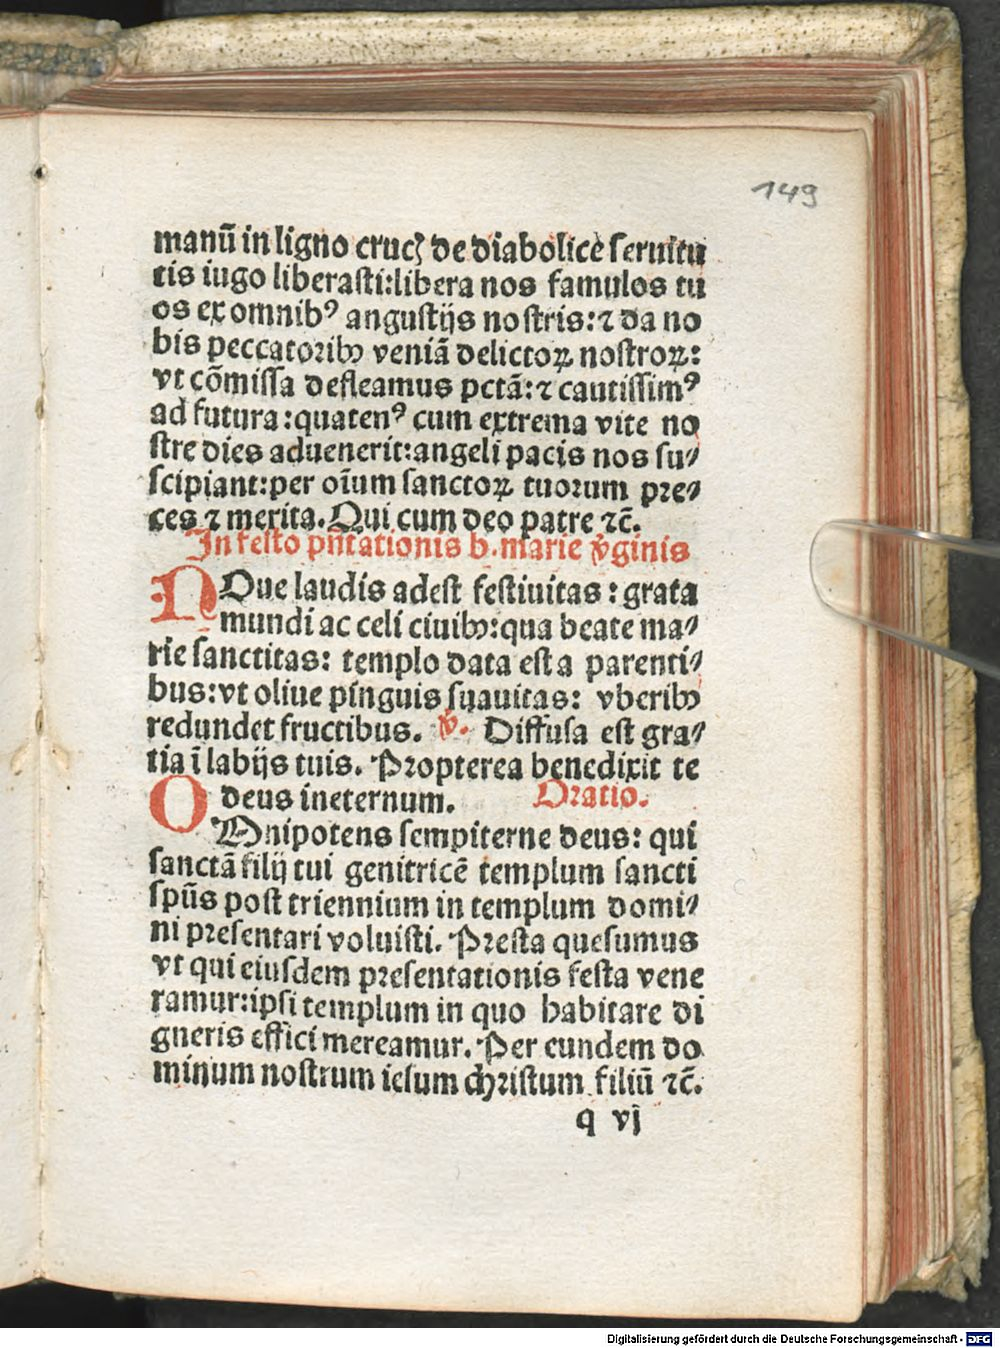 149
manū in ligno crucꝫ de diabolice ſeruitu
tis iugo liberaſti:libera nos famulos tu
os ex omnibꝰ anguſtijs noſtris:⁊ da no
bis peccatoribꝫ veniā delictoꝝ noſtroꝝ:
vt cōmiſſa defleamus pctā:⁊ cautiſſimꝰ
ad futura:quatenꝰ cum extrema vite no
ſtre dies aduenerit:angeli pacis nos ſu⸗
ſcipiant:per oīum ſanctoꝝ tuorum pre⸗
ces ⁊ merita. Qui cum deo patre ⁊c̄.
In feſto pn̄tationis b. marie v̓ginis
NOue laudis adeſt feſtiuitas : grata
mundi ac celi ciuibꝫ:qua beate ma⸗
rie ſanctitas: templo data eſt a parenti⸗
bus:vt oliue pinguis ſuauitas: vberibꝫ
redundet fructibus. v̓. Diffuſa eſt gra⸗
tia ī labijs tuis. Propterea benedixit te
deus in eternum. Oratio.
OMnipotens ſempiterne deus: qui
ſanctā filij tui genitricē templum ſancti
ſpūs poſt triennium in templum domi⸗
ni preſentari voluiſti. Preſta queſumus
vt qui eiuſdem preſentationis feſta vene
ramur:ipſi templum in quo habitare di
gneris effici mereamur. Per eundem do
minum noſtrum ieſum chriſtum filiū ⁊c̄.
q vj
Digitalisierung gefördert durch die Deutsche Forschungsgemeinschaft - DFG